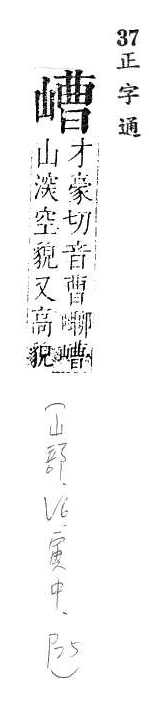 37正字通
嶆
才豪切音曹嶆嶆
山深空貌又高貌
(山部、V6、寅中、P25)